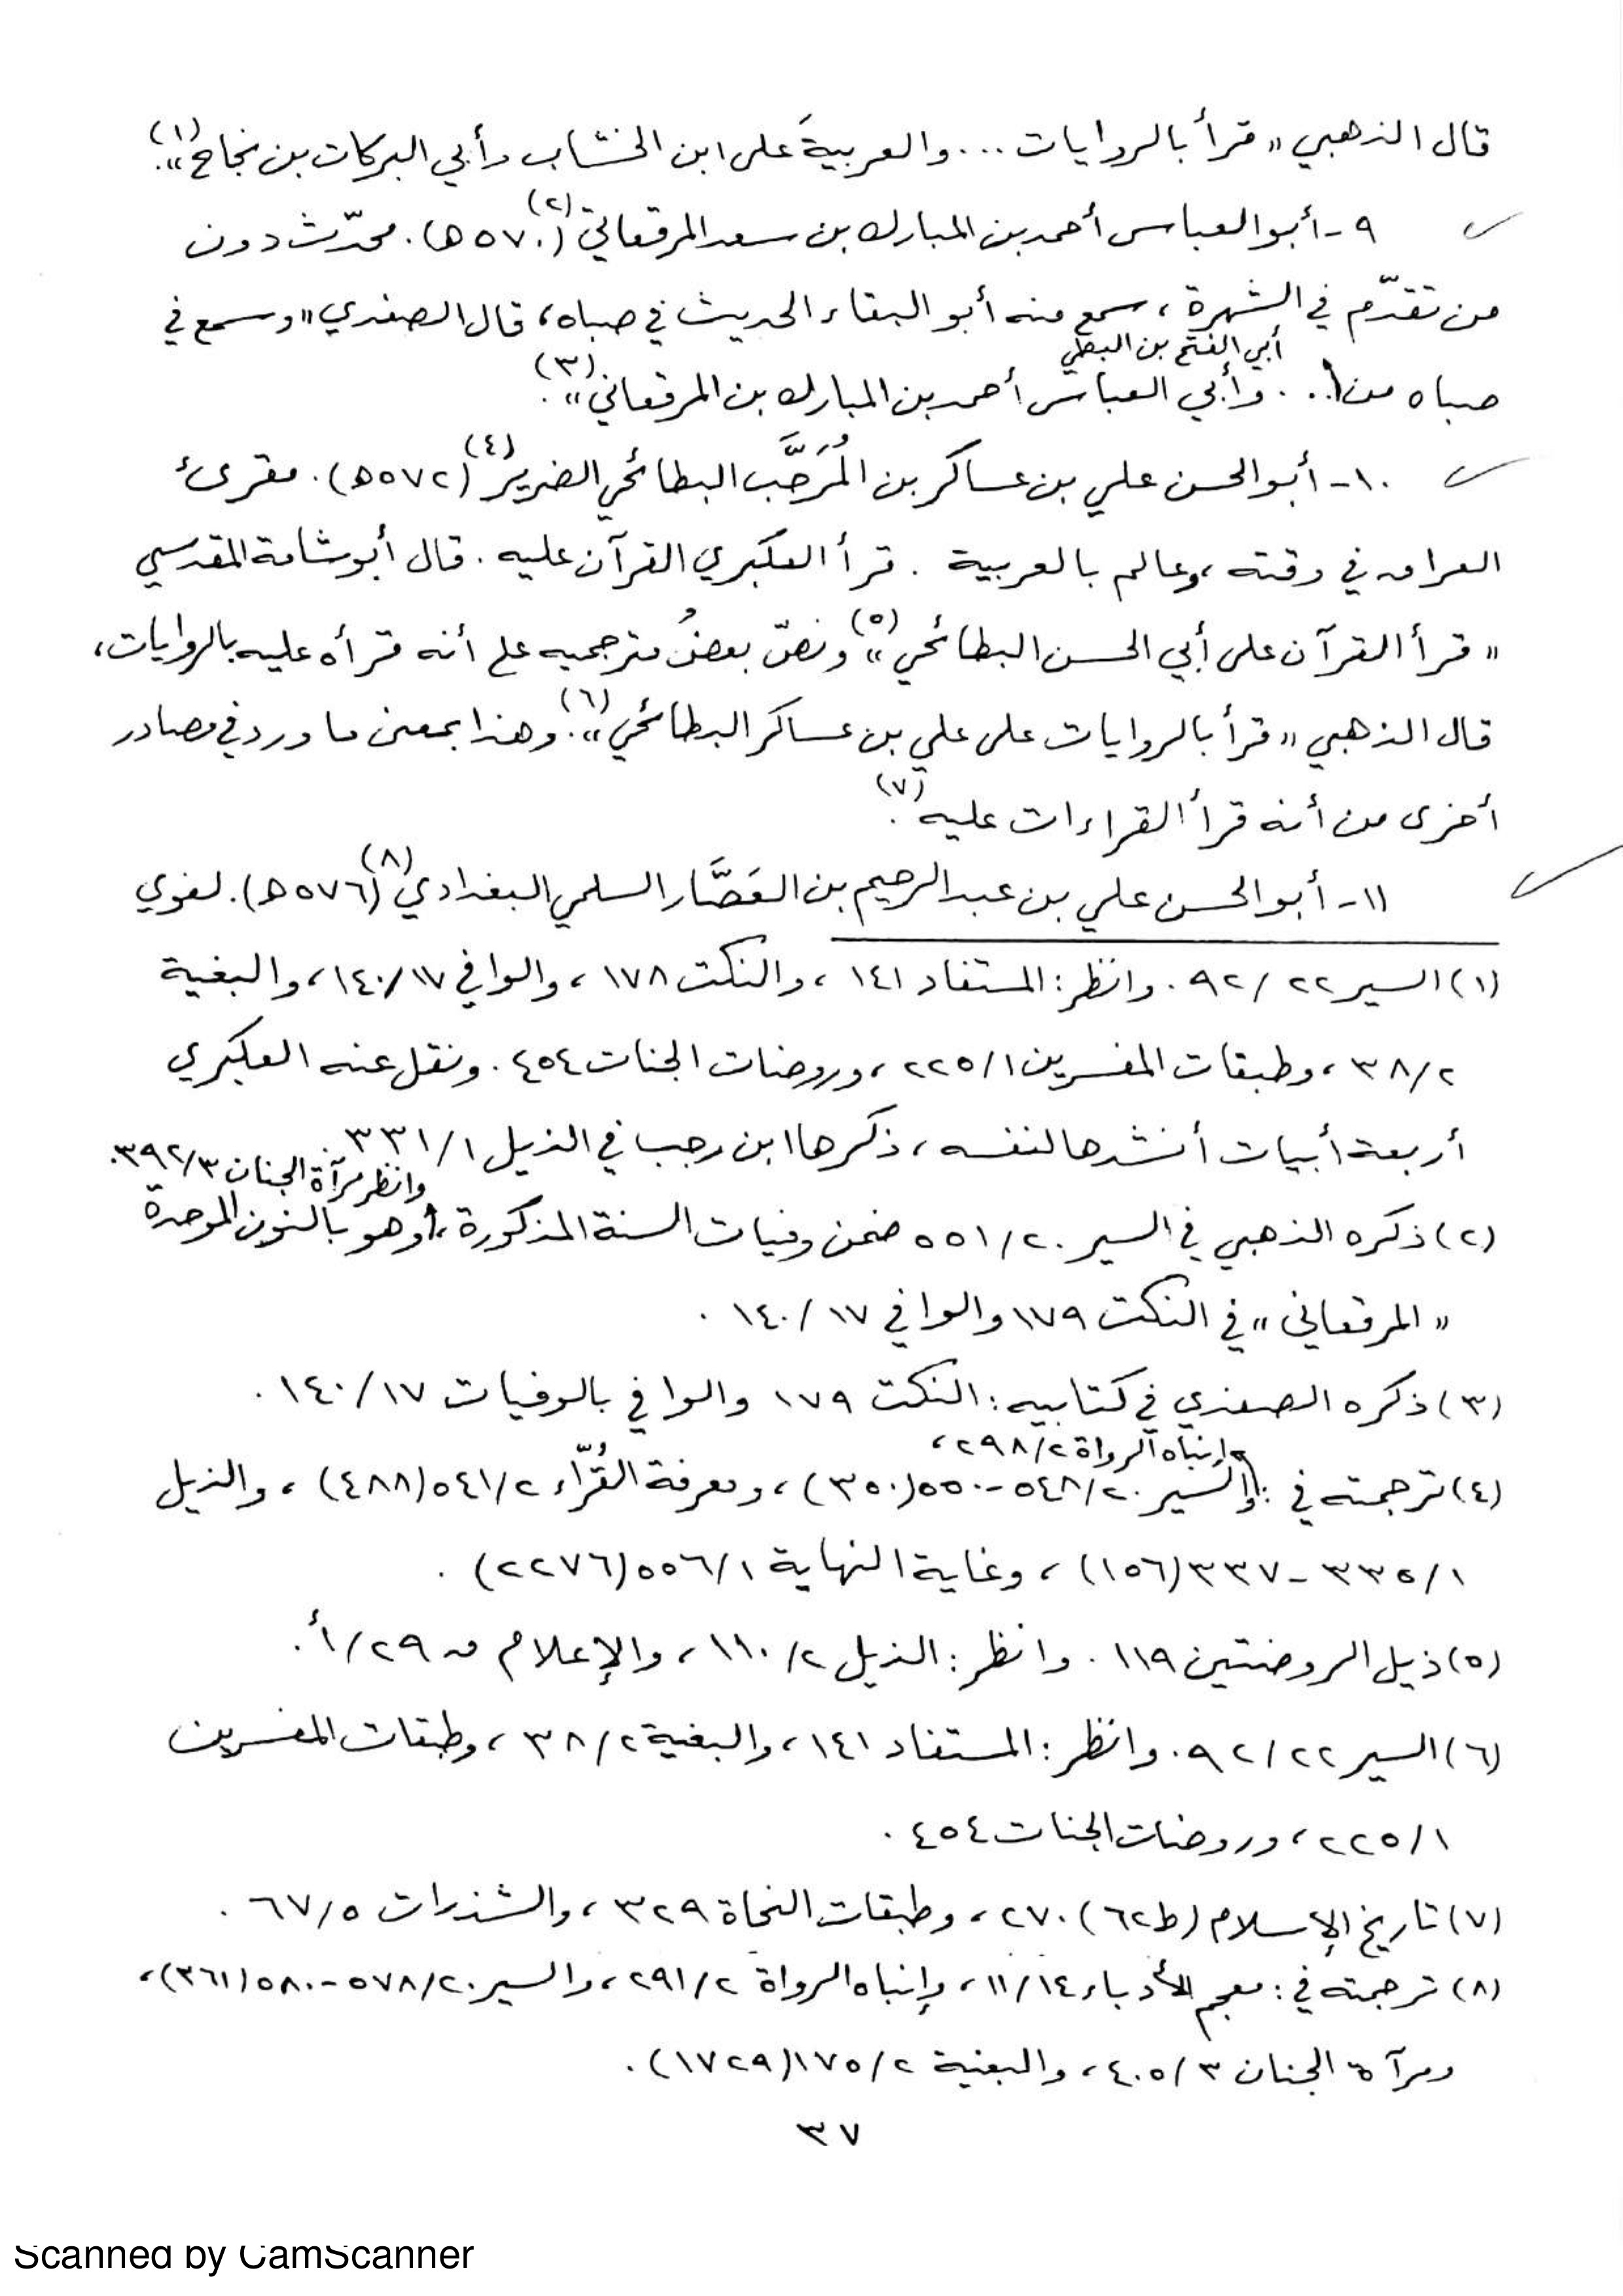 قال الذهبي «قرأ بالروايات ... والعربيةَ على ابن الخشاب وأبي البركات بن نجاح»(١).
٩- أبو العباس أحمد بن المبارك بن سعد المرقعاتي(٢) (٥٧٠ هـ). محدّث دون
من تقدّم في الشهرة، سمع منه أبو البقاء الحديث في صباه، قال الصفدي «وسمع في
صباه من أبي الفتح بن البطي .. وأبي العباس أحمد بن المبارك بن المرقعاني»(٣).
١٠- أبو الحسن علي بن عساكر بن المُرَحَّب البطائحي الضرير(٤) (٥٧٢ هـ). مقرئ
العراق في وقته، وعالم بالعربية. قرأ العكبري القرآن عليه. قال أبو شامة المقدسي
«قرأ القرآن على أبي الحسن البطائحي»(٥) ونصّ بعضُ مترجميه على أنه قرأه عليه بالروايات،
قال الذهبي «قرأ بالروايات على علي بن عساكر البطائحي»(٦). وهذا بمعنى ما ورد في مصادر
أخرى من أنه قرأ القراءات عليه(٧).
١١- أبو الحسن علي بن عبد الرحيم بن العَصَّار السلمي البغدادي(٨) (٥٧٦ هـ). لغوي
(١) السير ٢٢/ ٩٢. وانظر: المستفاد ١٤١، والنكت ١٧٨، والوافي ١٧/ ١٤٠، والبغية
٢/ ٣٨، وطبقات المفسرين ١/ ٢٢٥، وروضات الجنات ٤٥٤. ونقل عنه العكبري
أربعة أبيات أنشدها لنفسه، ذكرها ابن رجب في الذيل ١/ ٣٣١.
وانظر مرآة الجنان ٣/ ٣٩٢.
(٢) ذكره الذهبي في السير ٢٠/ ٥٥١ ضمن وفيات السنة المذكورة، وهو بالنون الموحدة
«المرقعاني» في النكت ١٧٩ والوافي ١٧/ ١٤٠.
(٣) ذكره الصفدي في كتابيه: النكت ١٧٩ والوافي بالوفيات ١٧/ ١٤٠.
وإنباه الرواة ٢/ ٢٩٨،
(٤) ترجمته في: والسير ٢٠/ ٥٤٨-٥٥٠ (٣٥٠)، ومعرفة القُرّاء ٢/ ٥٤١ (٤٨٨)، والذيل
١/ ٣٣٥-٣٣٧ (١٥٦)، وغاية النهاية ١/ ٥٥٦ (٢٢٧٦).
(٥) ذيل الروضتين ١١٩. وانظر: الذيل ٢/ ١١٠، والإعلام ق ٢٩/ ١أ.
(٦) السير ٢٢/ ٩٢. وانظر: المستفاد ١٤١، والبغية ٢/ ٣٨، وطبقات المفسرين
١/ ٢٢٥، وروضات الجنات ٤٥٤.
(٧) تاريخ الإسلام (ط٦٢) ٢٧٠، وطبقات النحاة ٣٢٩، والشذرات ٥/ ٦٧.
(٨) ترجمته في: معجم الأدباء ١٤/ ١١، وإنباه الرواة ٢/ ٢٩١، والسير ٢٠/ ٥٧٨-٥٨٠ (٣٦١)،
ومرآة الجنان ٣/ ٤٠٥، والبغية ٢/ ١٧٥ (١٧٢٩).
٣٧
Scanned by CamScanner